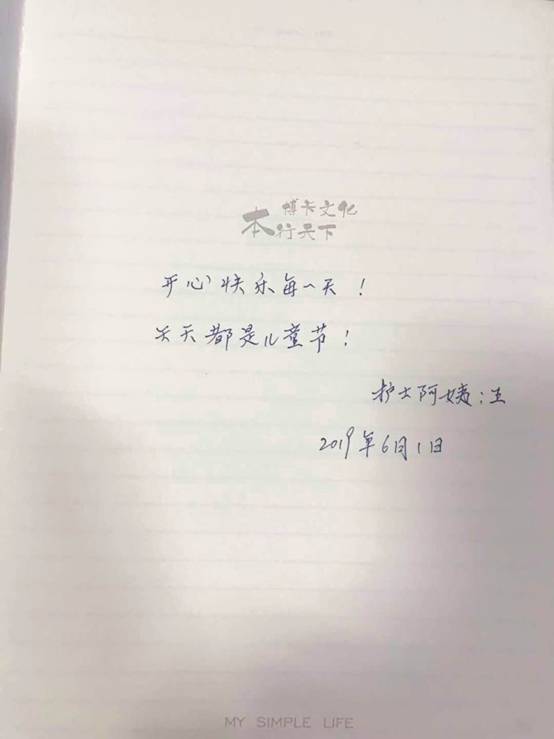 博卡文化
本行天下
开心快乐每一天！
天天都是儿童节！
护士阿姨：王
2019年6月1日
MY SIMPLE LIFE